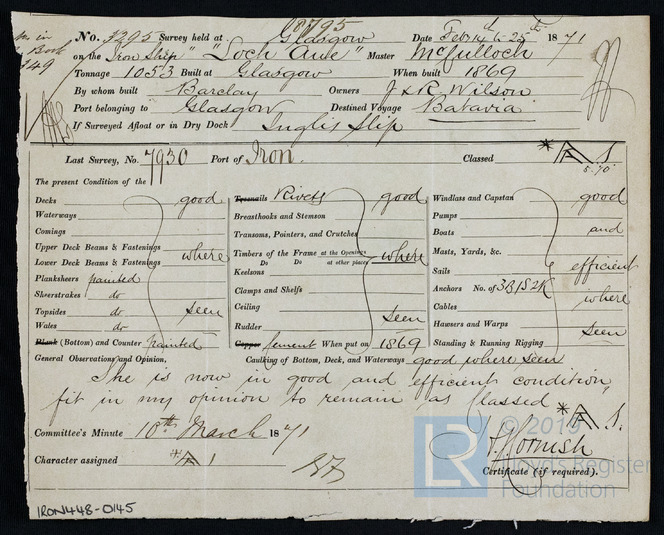 18795
No. 7295 Survey held at Glasgow Date Feb 14th & 25th 1871
on the Iron Ship "Loch Awe" Master McCulloch
Tonnage 1053 Built at Glasgow When built 1869
By whom built Barclay Owners J & R Wilson
Port belonging to Glasgow Destined Voyage Batavia
If Surveyed Afloat or in Dry Dock Inglis Slip
Last Survey, No. 7930 Port of Iron. Classed * A 1.
5.70
The present Condition of the
Decks good
Waterways
Comings
Upper Deck Beams & Fastenings
Lower Deck Beams & Fastenings where
Planksheers painted
Sheerstrakes do
Topsides do seen
Wales do
Blank (Bottom) and Counter painted
Treenails Rivets good
Breasthooks and Stemson
Transoms, Pointers, and Crutches
Timbers of the Frame at the Openings where
Do Do at other places
Keelsons
Clamps and Shelfs
Ceiling
seen
Rudder
Copper Cement When put on 1869
Windlass and Capstan good
Pumps
Boats and
Masts, Yards, &c.
Sails efficient
Anchors No. of 3B1S2K
Cables where
Hawsers and Warps
Standing & Running Rigging seen
General Observations and Opinion, Caulking of Bottom, Deck, and Waterways good where seen
She is now in good and efficient condition
fit in my opinion to remain as Classed * A 1.
Committee's Minute 10th March 1871
Character assigned * A 1
Certificate (if required).
IRON448-0145
LR
© 2019
Lloyd's Register
Foundation